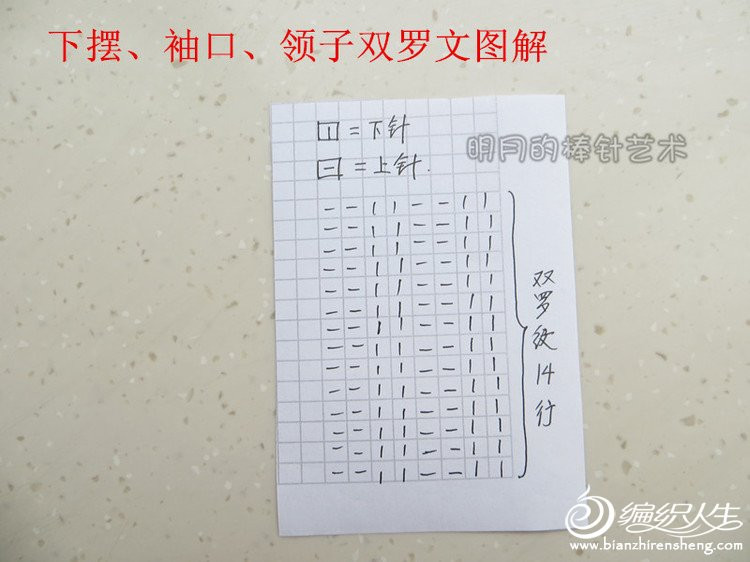 下摆、袖口、领子双罗文图解
明月的棒针艺术
| = 下针
— = 上针.
— — | | — — | |
— — | | — — | |
— — | | — — | |
— — | | — — | |
— — | | — — | |
— — | | — — | |
— — | | — — | |
— — | | — — | |
— — | | — — | |
— — | | — — | |
— — | | — — | |
— — | | — — | |
— — | | — — | |
— — | | — — | |
双罗纹14行
编织人生
www.bianzhirensheng.com